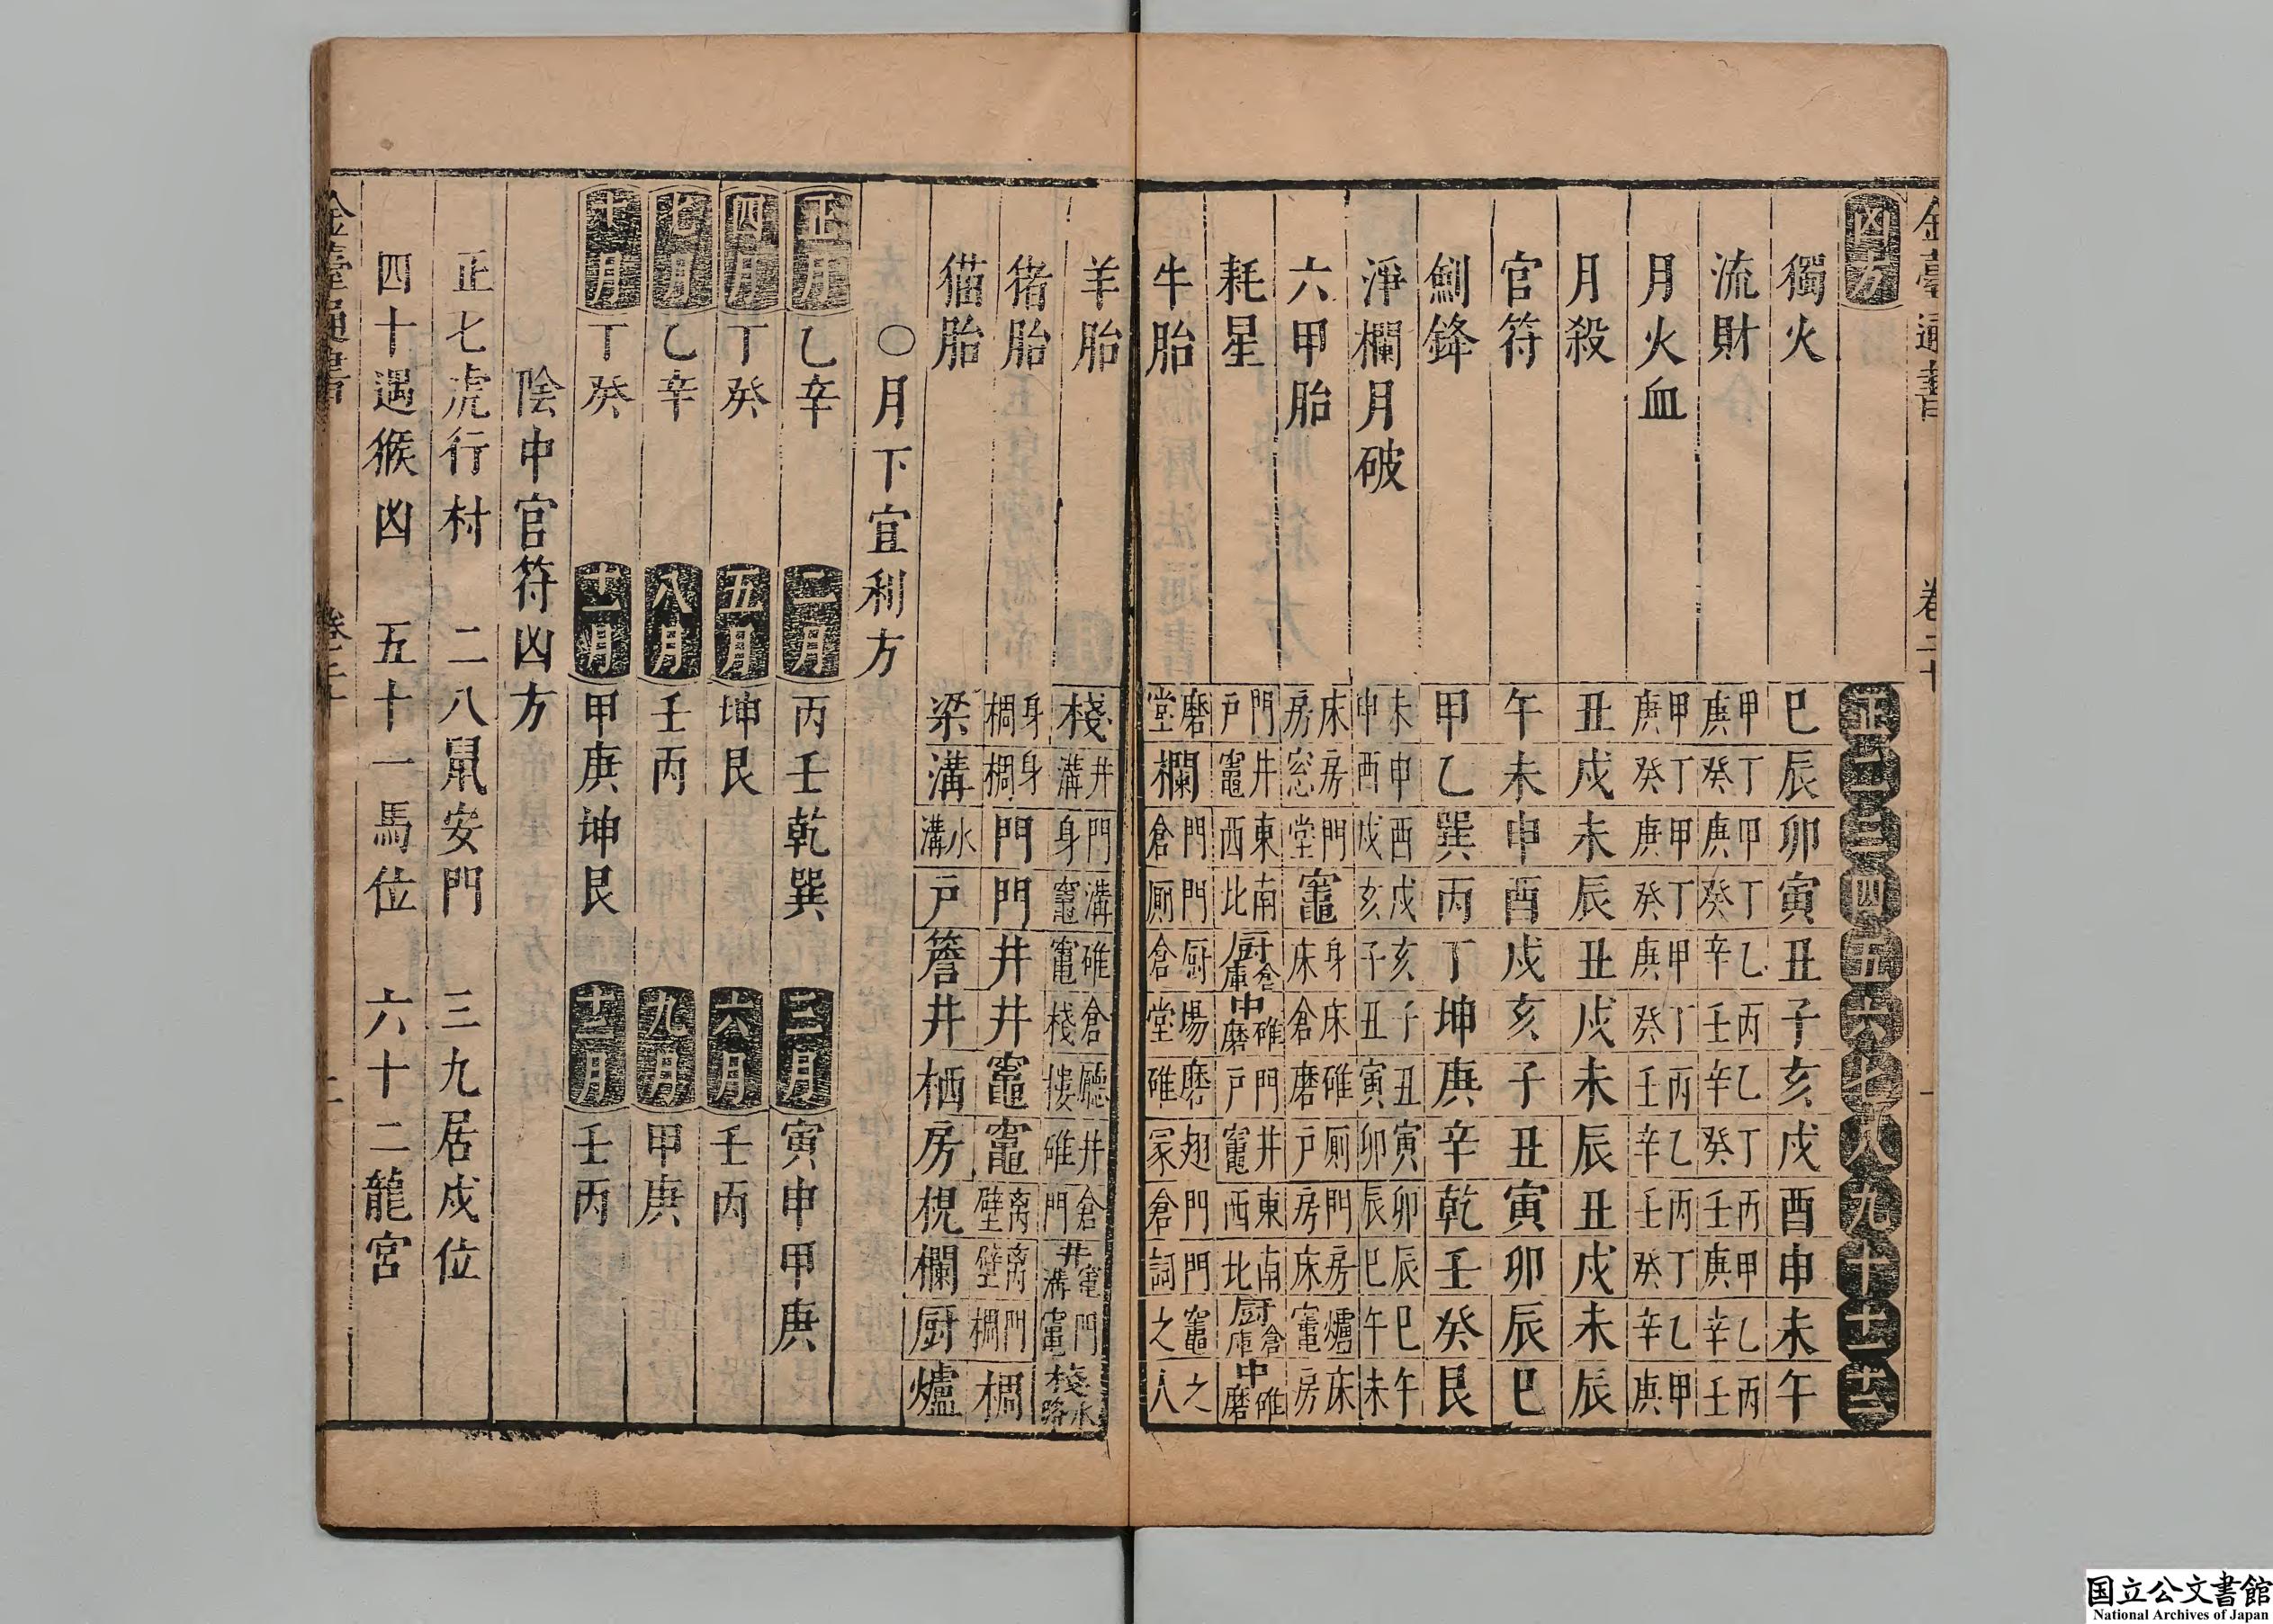 金臺通書 卷二十
凶方 正 二 三 四 五 六 七 八 九 十 十一 十二
獨火 巳 辰 卯 寅 丑 子 亥 戌 酉 申 未 午
流財 甲庚 丁癸 甲庚 丁癸 乙辛 丙壬 乙辛 丁癸 丙壬 甲庚 乙辛 丙壬
月火血 甲庚 丁癸 甲庚 丁癸 甲庚 丁癸 丙壬 乙辛 丙壬 丁癸 乙辛 甲庚
月殺 丑 戌 未 辰 丑 戌 未 辰 丑 戌 未 辰
官符 午 未 申 酉 戌 亥 子 丑 寅 卯 辰 巳
劍鋒 甲 乙 巽 丙 丁 坤 庚 辛 乾 壬 癸 艮
淨欄月破 未申 申酉 酉戌 戌亥 亥子 子丑 丑寅 寅卯 卯辰 辰巳 巳午 午未
六甲胎 床房 房窓 門堂 竈 身床 床倉 碓磨 厠戶 門房 房床 爐竈 床房
耗星 門戶 井竈 東西 南北 厨倉庫 中碓磨 門戶 井竈 東西 南北 厨倉庫 中碓磨
牛胎 磨堂 欄 門倉 門厠 厨倉 場堂 磨碓 翅冡 門倉 門詞 竈之 之人
羊胎 棧 井溝 門身 溝竈 碓竈 倉棧 廳楼 井碓 倉門 井竈溝 門竈 棧水路
猪胎 身椆 身椆 門 門 井 井 竈 竈 离壁 离壁 門椆 椆
猫胎 梁 溝 水溝 戶 簷 井 栖 房 梘 欄 厨 爐
○月下宜利方
正月 乙辛 二月 丙壬乾巽 三月 寅申甲庚
四月 丁癸 五月 坤艮 六月 壬丙
七月 乙辛 八月 壬丙 九月 甲庚
十月 丁癸 十一月 甲庚坤艮 十二月 壬丙
陰中官符凶方
正七虎行村 二八鼠安門 三九居戍位
四十遇猴凶 五十一馬位 六十二龍宮
金臺通書 卷二十
国立公文書館
National Archives of Japan